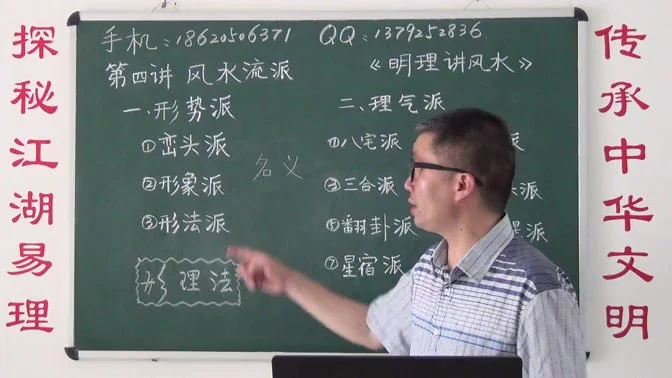 探秘江湖易理
手机：18620506371 QQ：1379252836
第四讲 风水流派 《明理讲风水》
一、形势派
①峦头派
②形象派
③形法派
形理法
名义
二、理气派
①八宅派
③三合派
派
⑤翻卦派
派
⑦星宿派
传承中华文明